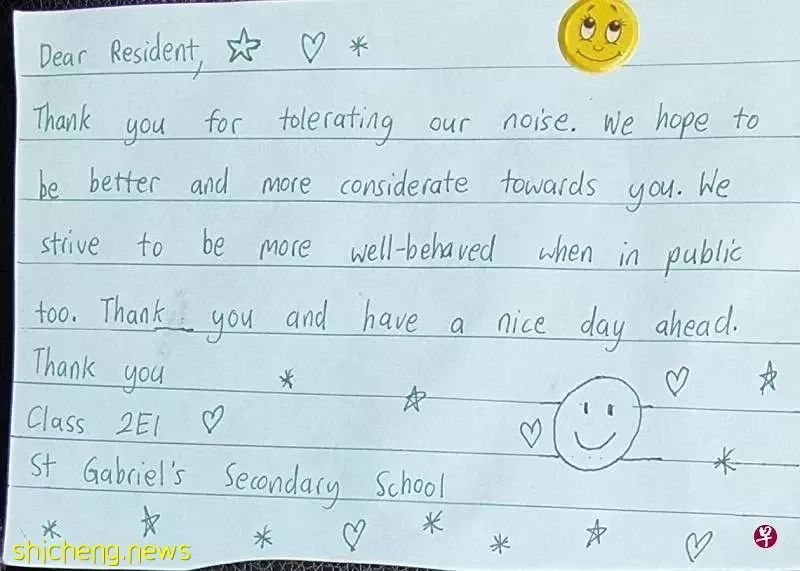 Dear Resident,
Thank you for tolerating our noise. We hope to
be better and more considerate towards you. We
strive to be more well-behaved when in public
too. Thank you and have a nice day ahead.
Thank you
Class 2E1
St Gabriel's Secondary School
shicheng.news
早